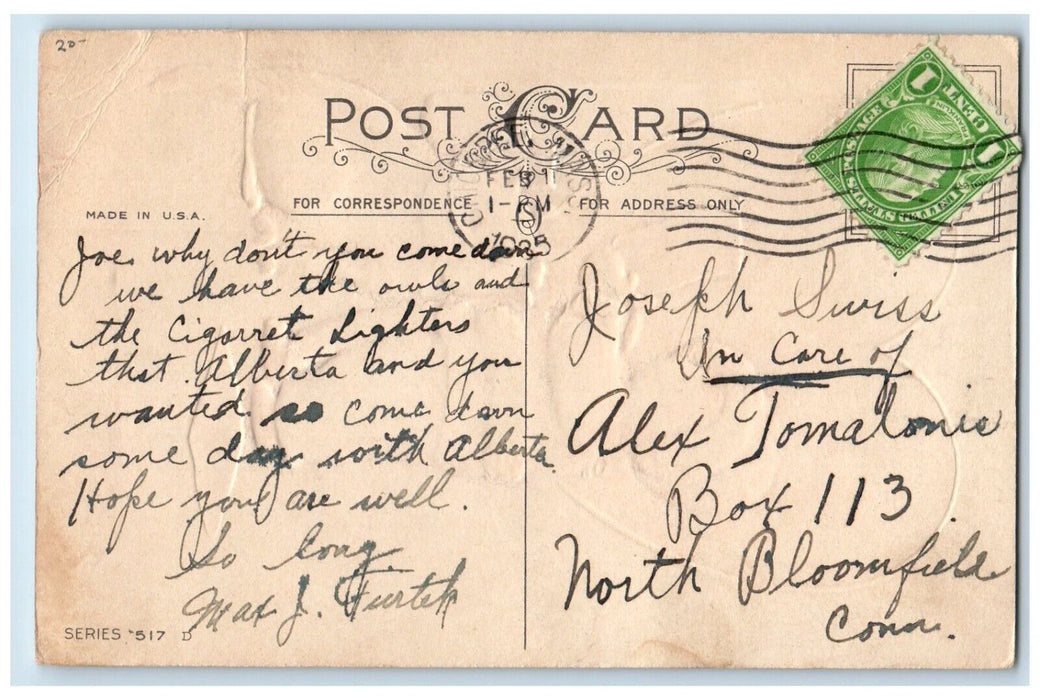 20-
POST CARD
FEB 11
1-PM
1925
MASS
1 CENT 1
FRANKLIN
UNITED STATES POSTAGE
MADE IN U.S.A.
FOR CORRESPONDENCE
FOR ADDRESS ONLY
Joe why don't you come down
we have the owls and
the Cigarret Lighters
that Alberta and you
wanted so come down
some day with Alberta.
Hope you are well.
So long
Max J. Furtek
SERIES 517 D
Joseph Swiss
In Care of
Alex Tomalonis
Box 113
North Bloomfield
Conn.